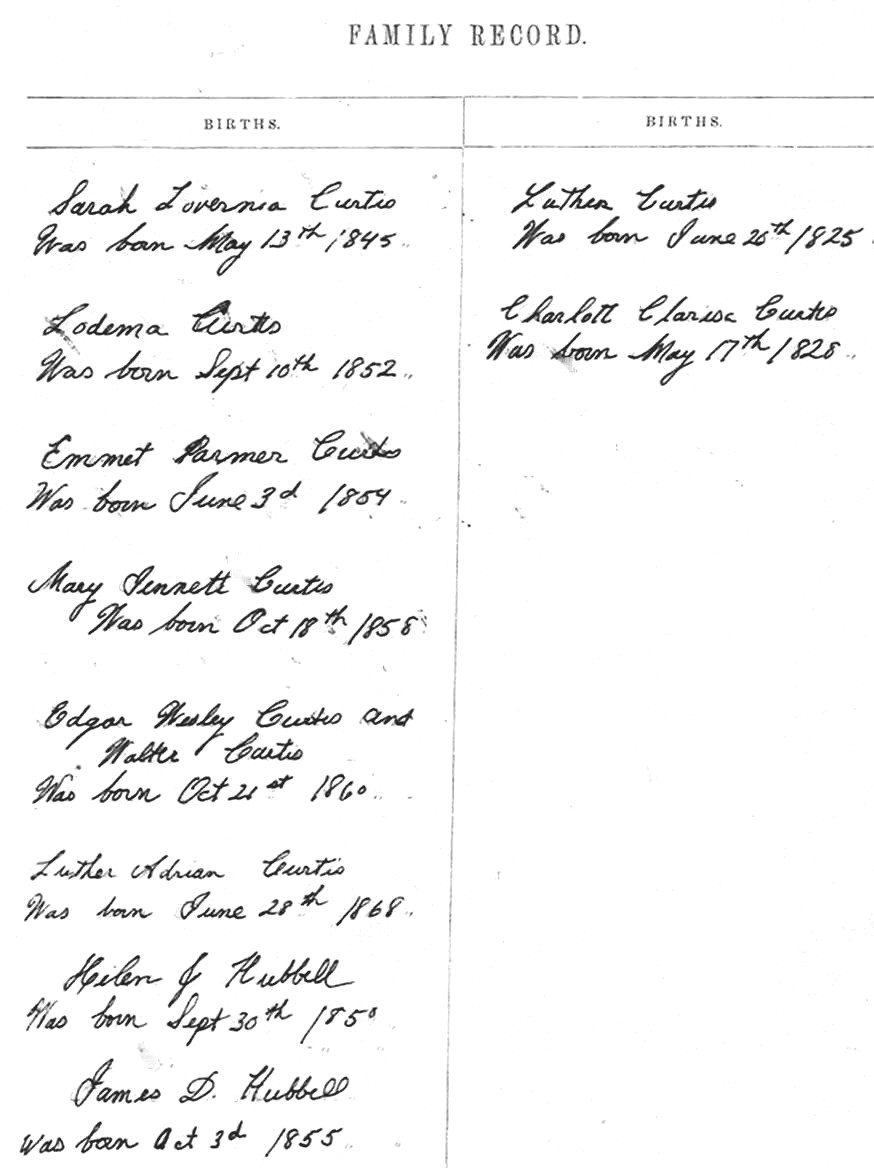 FAMILY RECORD.
BIRTHS.
Sarah Lovernia Curtis
Was born May 13th 1845
Lodema Curtis
Was born Sept 10th 1852
Emmet Parmer Curtis
Was born June 3d 1854
Mary Jennett Curtis
Was born Oct 18th 1858
Edgar Wesley Curtis and
Walter Curtis
Was born Oct 21st 1860
Luther Adrian Curtis
Was born June 28th 1868
Helen J Hubbell
Was born Sept 30th 1850
James D. Hubbell
Was born Oct 3d 1855
BIRTHS.
Luther Curtis
Was born June 1825
Charlott Clarisa Curtis
Was born May 17th 1828